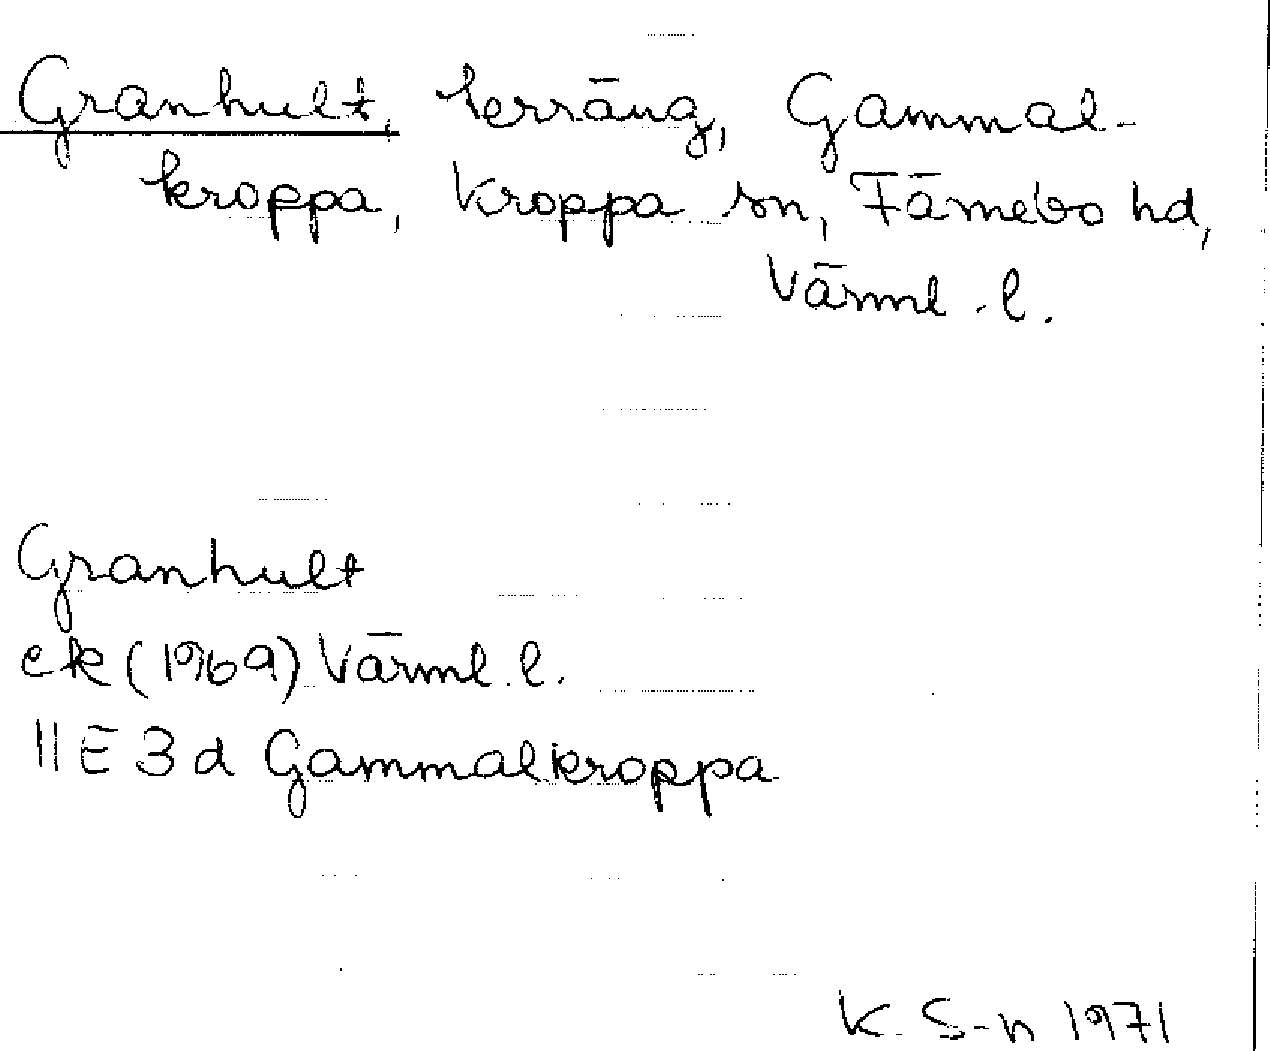 Granhult, terräng, Gammal-
kroppa, Kroppa sn, Färnebo hd,
Värml. l.
Granhult
ek (1969) Värml. l.
11E 3d Gammalkroppa
K. S-n 1971